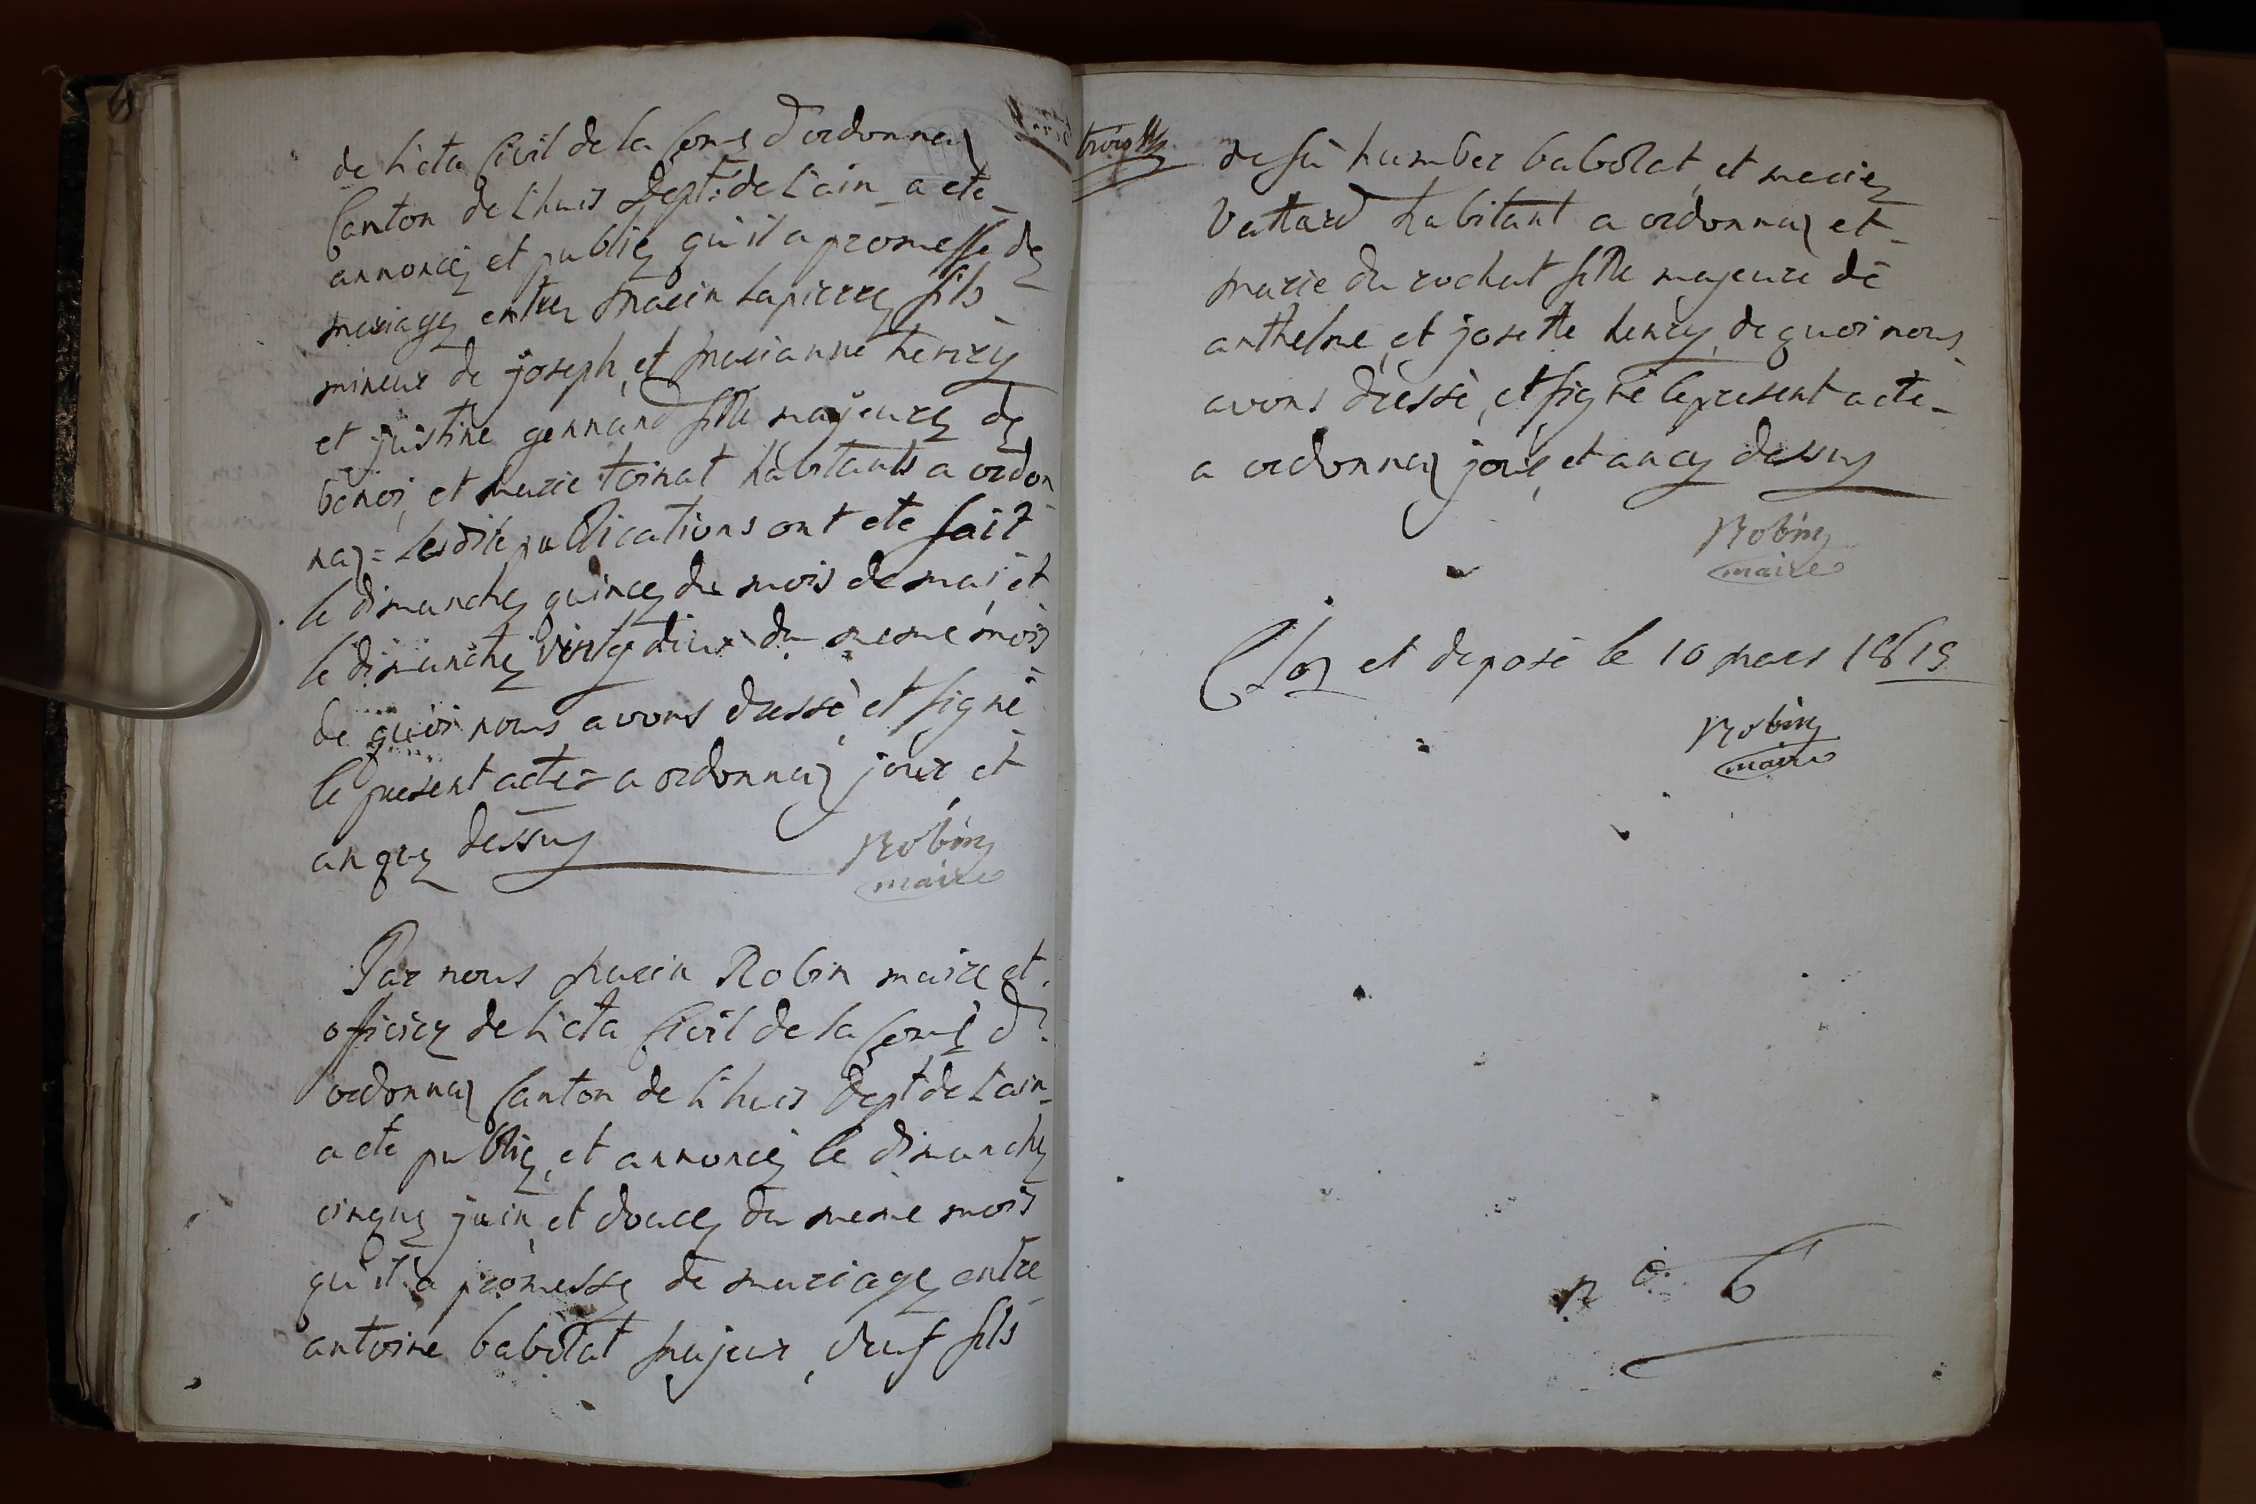 de L'eta Civil de la Com.e d'ordonnaz
Canton de Lhuis Dept. de L'ain a ete
annoncez et publiez qu'il a promesse de
mariage entre marin Lapierre fils
mineur de joseph, et marianne henry
et justine gennand fille majeure de
benoi, et marie toinat habitants a ordon
naz = Lesdite publications ont ete fait
le dimanche quince du mois de mai, et
le dimanche vinte dieux du meme mois
de quoi nous avons dressé, et signé
le present acte = a ordonnaz jour et
an que dessus
Robin
maire
Par nous marin Robin maire et
officier de L'eta Civil de la Com.e d'
ordonnaz Canton de Lhuis Dept de L'ain
a ete publiez, et annoncez le dimanche
cinque juin, et douce du meme mois
qu'il a promesse de mariage entre
antoine babolat majeur, veuf fils
trois
de fü humber babolat, et marie
Vattard habitant a ordonnaz et
marie du rochat fille majeure de
anthelme, et josette henry, de quoi nous
avons dressé, et signé le present acte
a ordonnaz jour, et ancy dessus
Robin
maire
Cloz et deposé le 10 mars 1815
Robin
maire
n o. 6